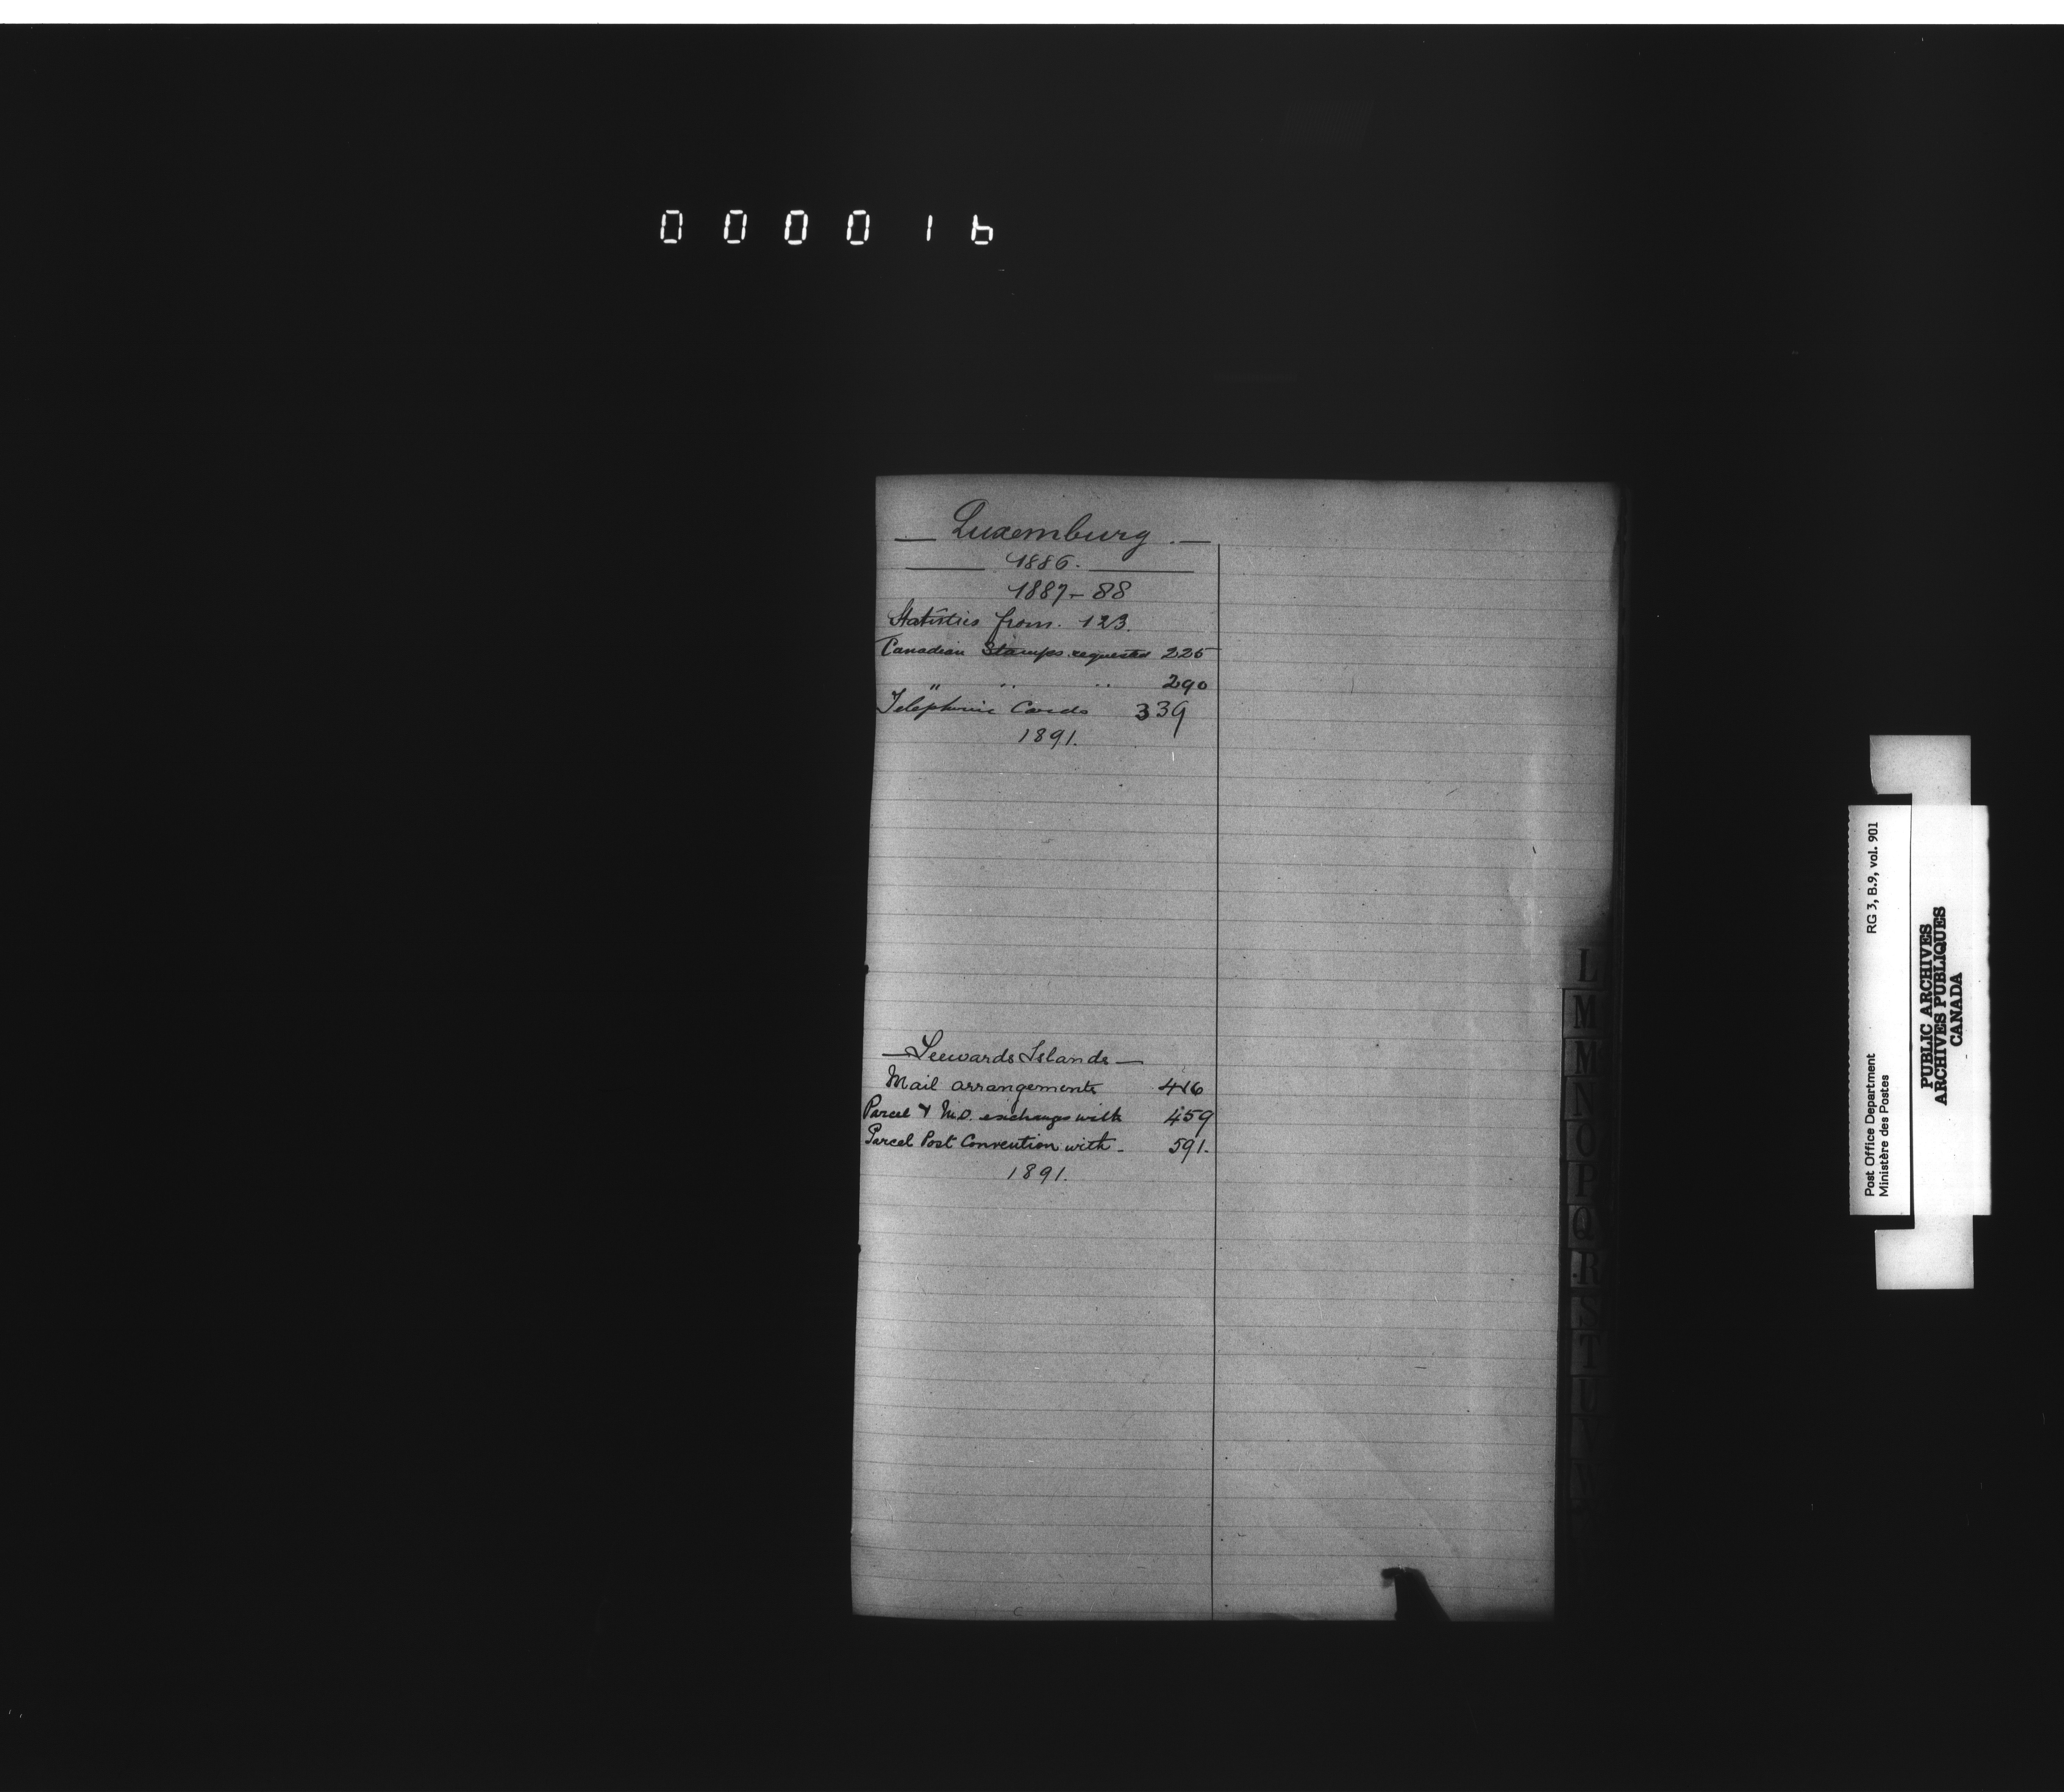 000016
— Luxemburg. —
1886.
1887-88
Statistics from. 123.
Canadian Stamps requested 225
" " " 290
Telephonic Cards 339
1891.
— Leewards Islands —
Mail arrangements 416
Parcel & M.O. exchange with 459
Parcel Post Convention with - 591.
1891.
L
M
M
N
O
P
Q
R
S
T
U
V
W
Post Office Department RG 3, B.9, vol. 901
Ministère des Postes
PUBLIC ARCHIVES
ARCHIVES PUBLIQUES
CANADA